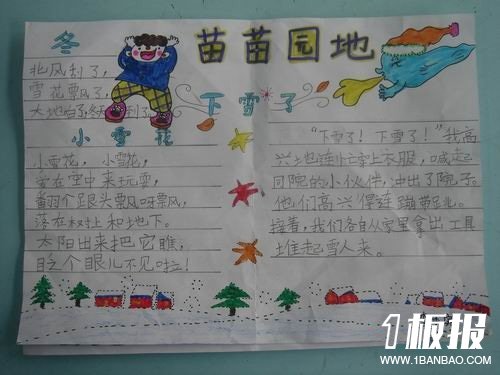 苗苗园地
冬
北风刮了，
雪花飘了，
大地白了，冬天到了。
小雪花
小雪花，小雪花，
爱在空中来玩耍，
落在树上和地下。
太阳出来把它瞧，
眨个眼儿不见啦！
下雪了
“下雪了！下雪了！”我高
兴地连忙穿上衣服，喊起
同院的小伙伴，冲出了院子。
他们高兴得连蹦带跳。
接着，我们各自从家里拿出工具
堆起雪人来。
1板报
WWW.1BANBAO.COM